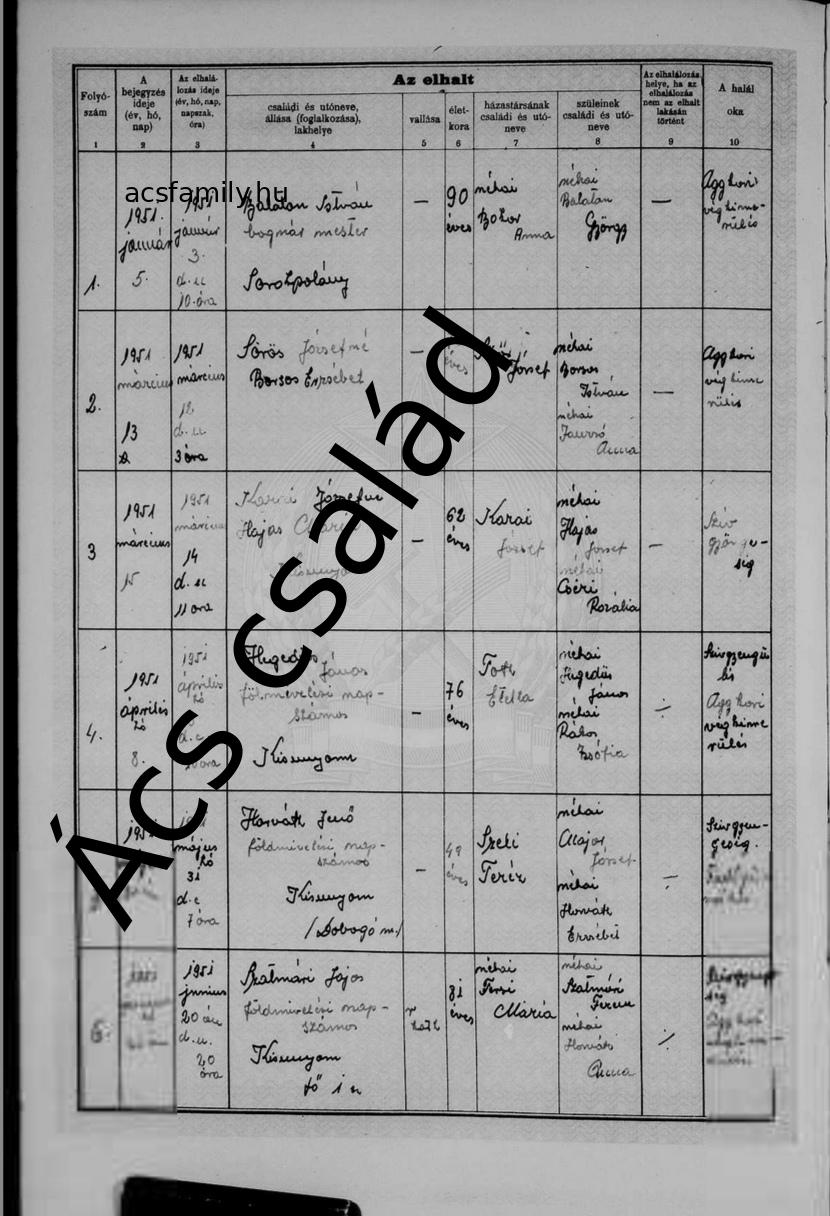 Az elhalt
Folyó-
szám
A
bejegyzés
ideje
(év, hó,
nap)
Az elhalá-
lozás ideje
(év, hó, nap,
napszak,
óra)
családi és utóneve,
állása (foglalkozása),
lakhelye
vallása
élet-
kora
házastársának
családi és utó-
neve
szüleinek
családi és utó-
neve
Az elhalálozás
helye, ha az
elhalálozás
nem az elhalt
lakásán
történt
A halál
oka
1 2 3 4 5 6 7 8 9 10
acsfamily.hu
1.
1951.
január
5.
1951
január
3.
d.u
10 óra
Balatán István
bognár mester
Sorokpolány
—
90
éves
néhai
Bokor
Anna
néhai
Balatán
György
—
Aggkori
végkime-
rülés
2.
1951
március
13
1951
március
12
d.u.
3 óra
Sörös Józsefné
Borsos Erzsébet
—
éves
József
néhai
Borsos
István
néhai
Anna
—
Aggkori
végkime
rülés
3
1951
március
15
1951
március
14
d.u
11 óra
Karai Józsefné
Hajas Mária
—
62
éves
Karai
József
néhai
Hajas
József
néhai
Cséri
Rozália
—
Szív
gyönge-
ség
4.
1951
április
hó
8.
1951
április
hó
óra
Hegedüs
János
földmivelési nap-
számos
Kisunyom
—
76
éves
Tóth
Etelka
néhai
Hegedüs
János
néhai
Rákos
Zsófia
Aggkori
végkime
rülés
1951
május
hó
31
d.e
7 óra
Horváth Jenő
földmivelési nap-
számos
Kisunyom
/Dobogó m./
—
49
éves
Szeli
Teréz
néhai
Major
József
néhai
Horváth
Erzsébet
Szivgyen-
geség.
6.
1951
június
20 án
d.u.
20
óra
Szatmári Lajos
földmivelési nap-
számos
Kisunyom
81
éves
néhai
Mária
néhai
Szatmári
Ferenc
néhai
Horváth
Anna
Ács család